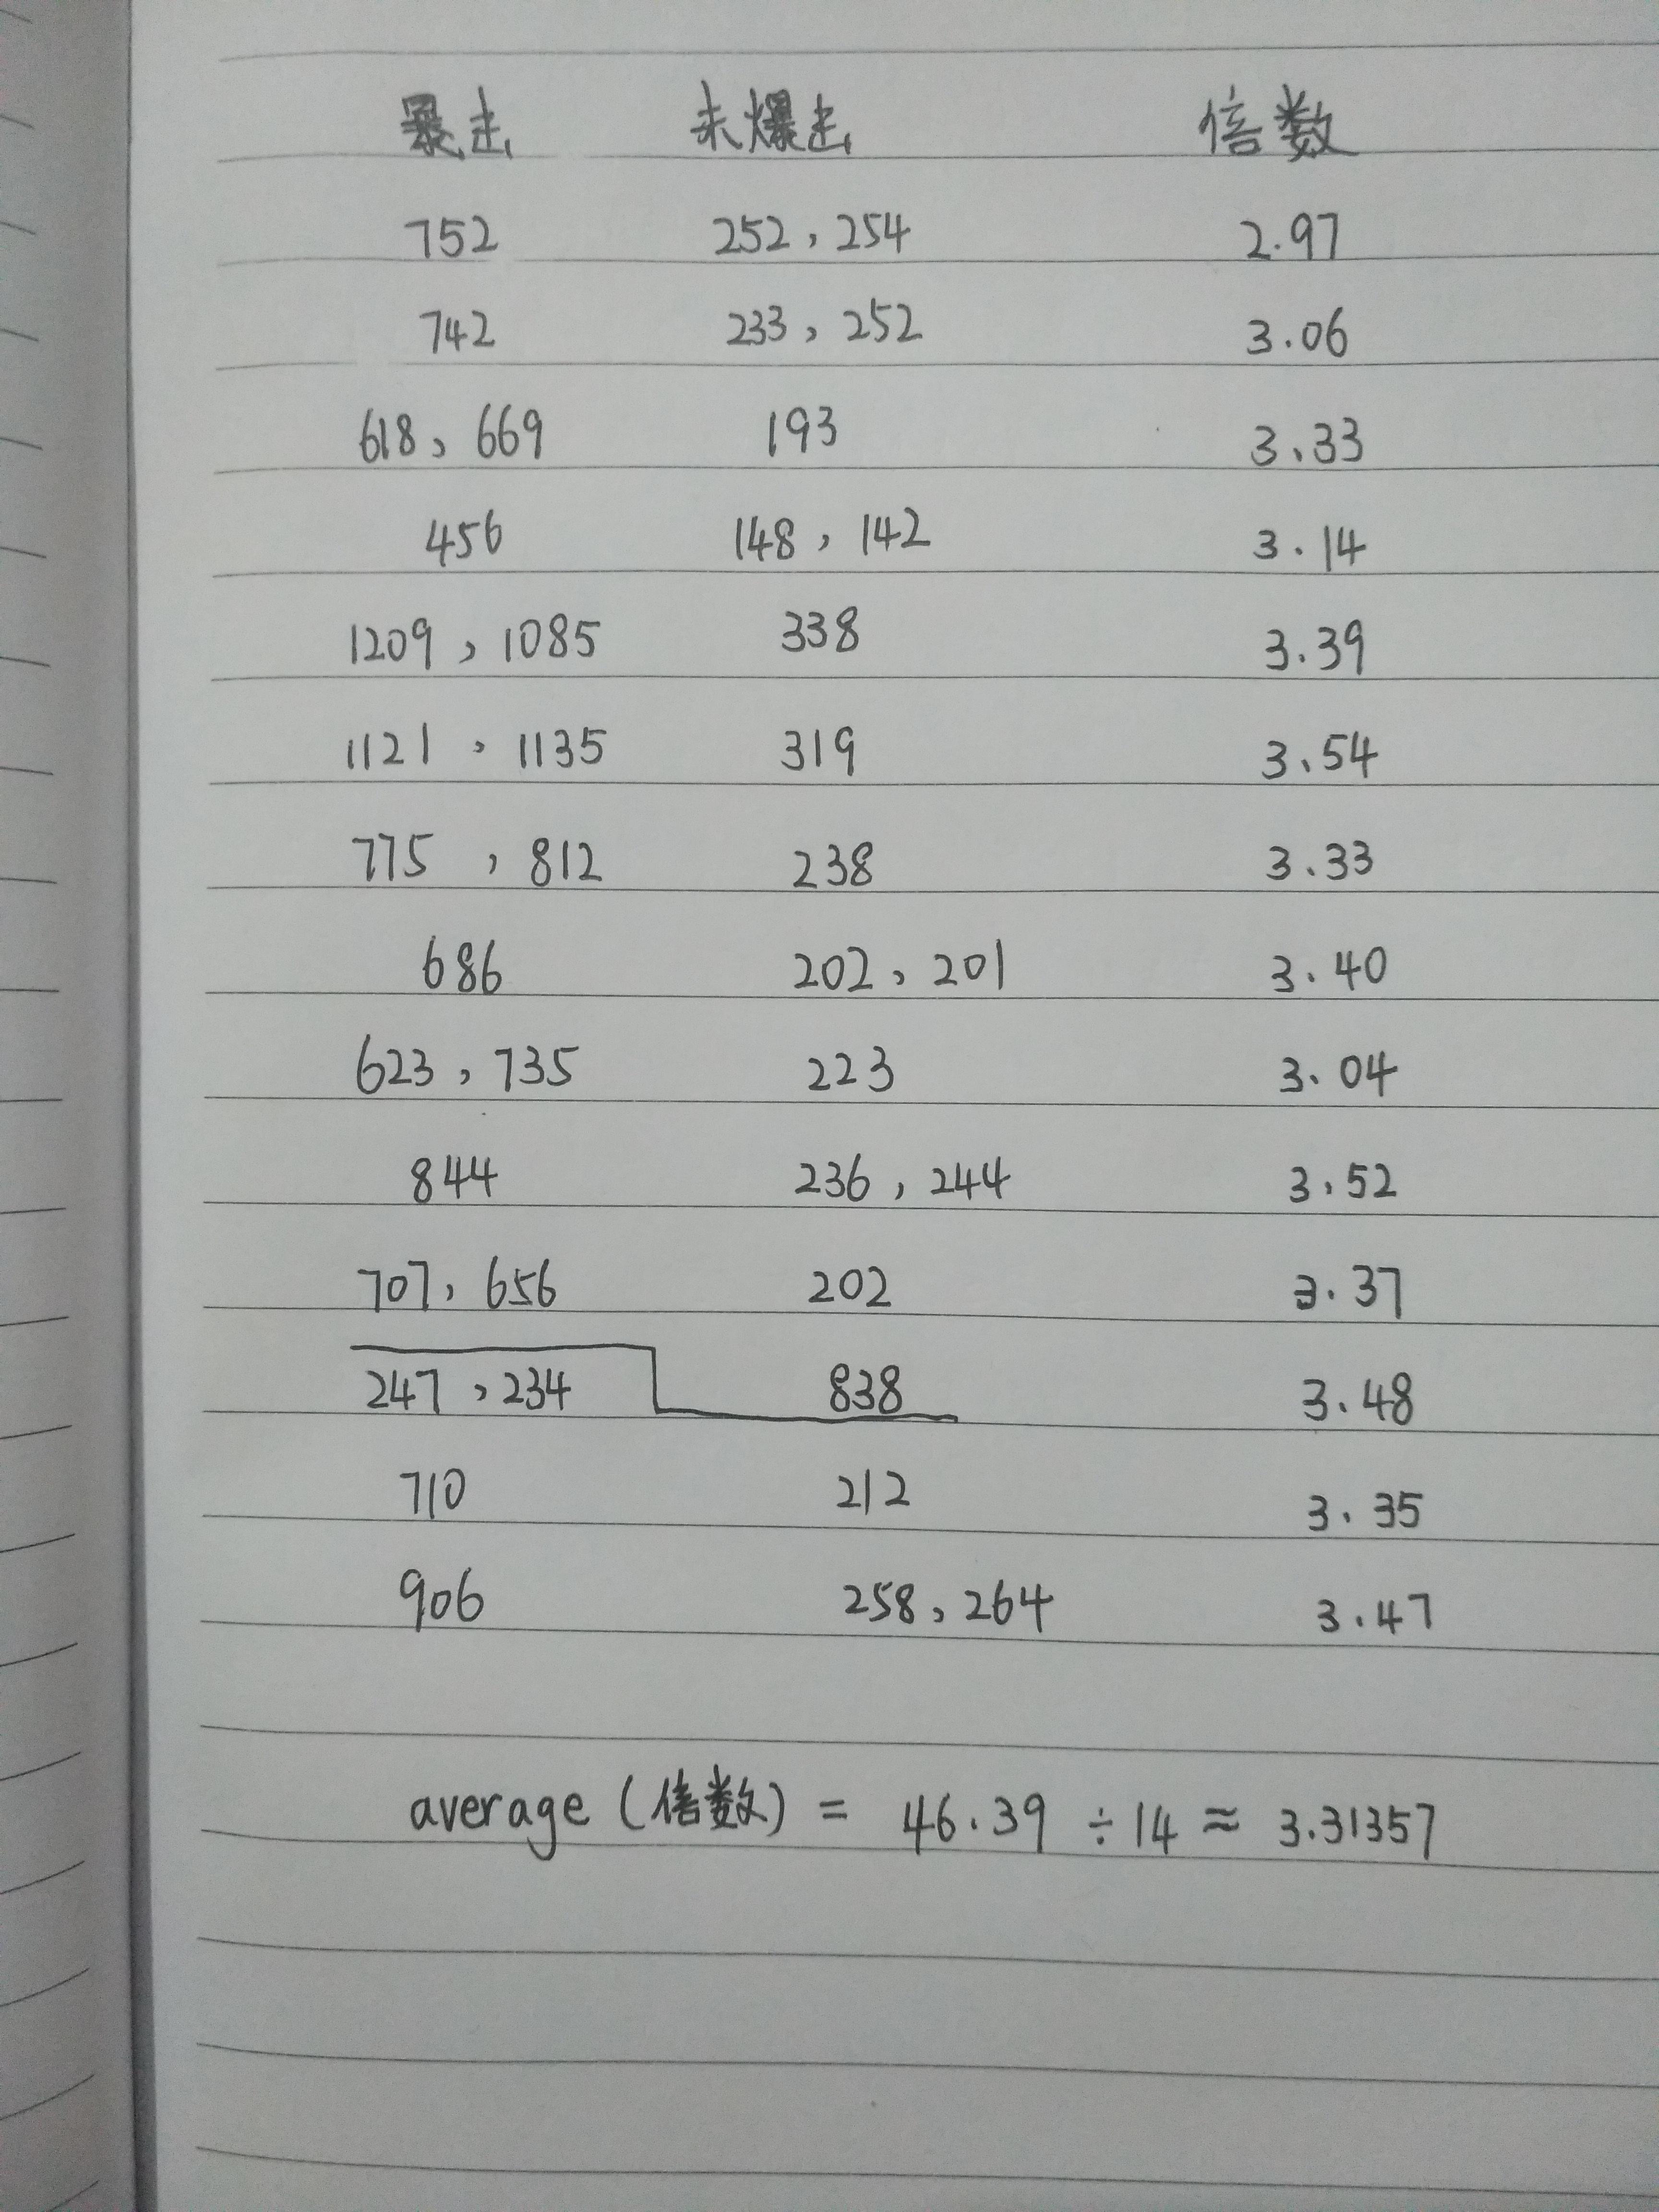 暴走 未爆走 倍数
752 252，254 2.97
742 233，252 3.06
618，669 193 3.33
456 148，142 3.14
1209，1085 338 3.39
1121，1135 319 3.54
775，812 238 3.33
686 202，201 3.40
623，735 223 3.04
844 236，244 3.52
707，656 202 3.37
247，234 838 3.48
710 212 3.35
906 258，264 3.47
average（倍数）= 46.39 ÷14 ≈ 3.31357